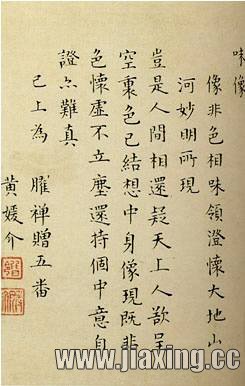 味像
像非色相味領澄懷大地山
河妙明所現
豈是人間相還疑天上人歎呈
空裏色已結想中身像現既非
色懷虛不立塵還持個中意自
證亦難真
已上為
雁禅贈五番
黄媛介
www.jiaxing.cc